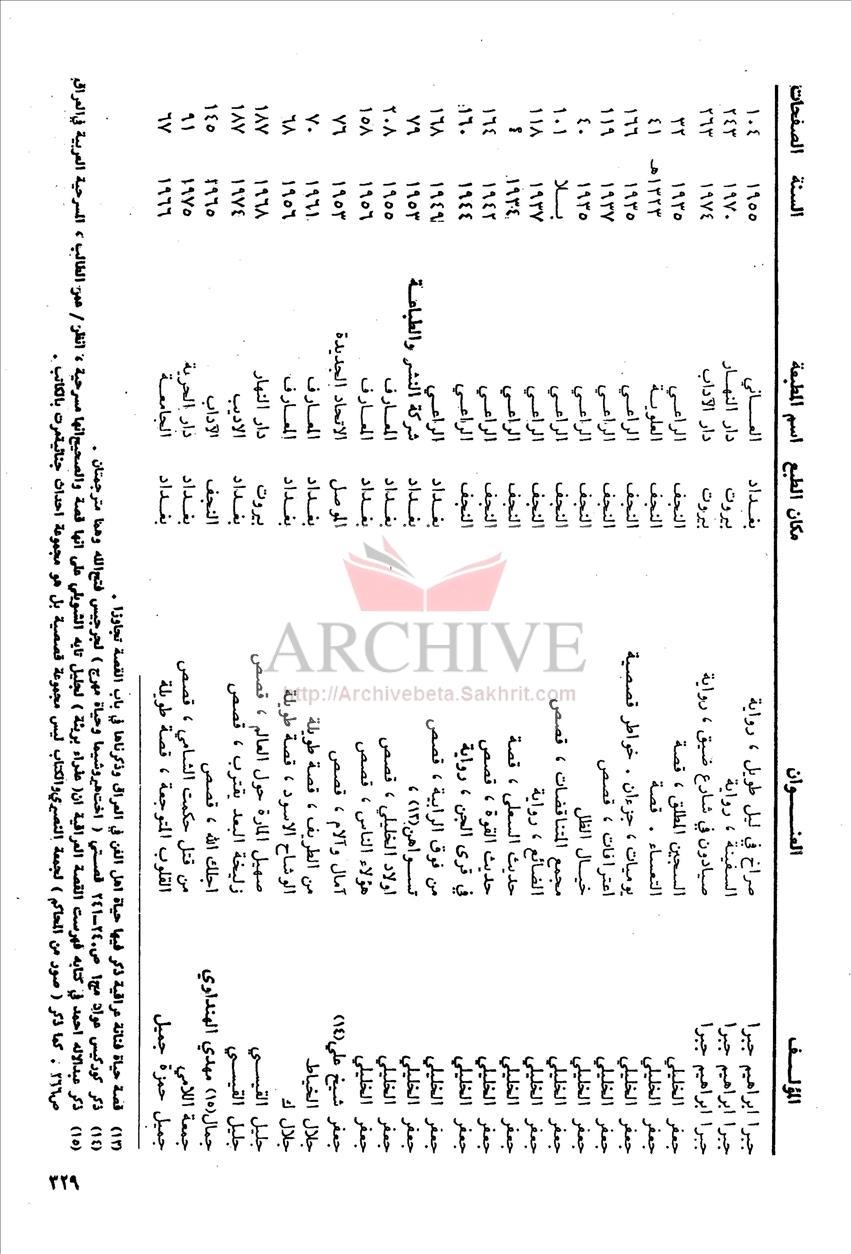 المؤلف العنوان مكان الطبع اسم المطبعة السنة الصفحات
جبرا ابراهيم جبرا صراخ في ليل طويل ، رواية بغداد العاني ١٩٥٥ ١٠٤
جبرا ابراهيم جبرا السفينة ، رواية بيروت دار النهار ١٩٧٠ ٢٤٣
جبرا ابراهيم جبرا صيادون في شارع ضيق ، رواية بيروت دار الآداب ١٩٧٤ ٢٦٣
جعفر الخليلي السجين المطلق ، قصة النجف الراعي ١٩٣٥ ٣٢
جعفر الخليلي التعساء . قصة النجف العلوية ١٣٢٣هـ ٤١
جعفر الخليلي يوميات ، جزءان . خواطر قصصية النجف الراعي ١٩٣٥ ١٦٦
جعفر الخليلي اعترافات ، قصص النجف الراعي ١٩٣٧ ١١٩
جعفر الخليلي خيال الظل النجف الراعي ١٩٣٥ ٤٠
جعفر الخليلي مجمع المتناقضات ، قصص النجف الراعي بلا ١٠١
جعفر الخليلي الضائع ، رواية النجف الراعي ١٩٣٧ ١١٨
جعفر الخليلي حديث السعلى ، قصة النجف الراعي ١٩٣٤ ؟
جعفر الخليلي حديث القوة ، قصص النجف الراعي ١٩٤٢ ١٦٤
جعفر الخليلي في قرى الجن ، رواية النجف الراعي ١٩٤٤ ١٦٠
جعفر الخليلي من فوق الرابية ، قصص بغداد الراعي ١٩٤٩ ١٦٨
جعفر الخليلي تسواهن(١٣) ، بغداد شركة النشر والطباعة ١٩٥٣ ٧٩
جعفر الخليلي اولاد الخليلي ، قصص بغداد المعارف ١٩٥٥ ٢٠٨
جعفر الخليلي هؤلاء الناس ، قصص بغداد المعارف ١٩٥٦ ١٥٨
جعفر شيخ علي(١٤) آمال وآلام ، قصص الموصل الاتحاد الجديدة ١٩٥٣ ٧٦
جلال الخياط من الطريف ، قصة طويلة بغداد المعارف ١٩٦١ ٧٠
جلال ك الوشاح الاسود ، قصة طويلة بغداد المعارف ١٩٥٦ ٦٨
جليل القيسي صهيل المارة حول العالم ، قصص بيروت دار النهار ١٩٦٨ ١٨٧
جليل القيسي زليخة البعد يقترب ، قصص بغداد الاديب ١٩٧٤ ١٨٧
جمال(١٥) مهدي الهنداوي اجلك الله ، قصص النجف الآداب ١٩٦٥ ١٤٥
جمعة اللامي من قتل حكمت الشامي ، قصص بغداد دار الحرية ١٩٧٥ ٩١
جميل حمزة جميل القلوب المتوجعة ، قصة طويلة بغداد الجامعة ١٩٦٦ ٦٧
(١٣) قصة حياة فنانة عراقية ذكر فيها حياة اهل الفن في العراق وذكرناها في باب القصة تجاوزا .
(١٤) ذكر كوركيس عواد مج١ ص٢٤٠-٢٤١ قصتي ( اختاهيروشيما وحياة مهرج ) لجرجيس فتح الله وهما مترجمتان .
(١٥) ذكر عبدالاله احمد في كتابه فهرست القصة العراقية ان( عذراء بريئة ) لجليل تايه الشويلي على انها قصة والصحيح انها مسرحية ، انظر / عمر الطالب ، المسرحية العربية في العراق
ص٢٦٦ . كما ذكر ( صور من الحاكم ) لجمعة النصيري والكتاب ليس مجموعة قصصية بل هو مجموعة احداث جنائية مرت بالكاتب .
٣٢٩
ARCHIVE
http://Archivebeta.Sakhrit.com